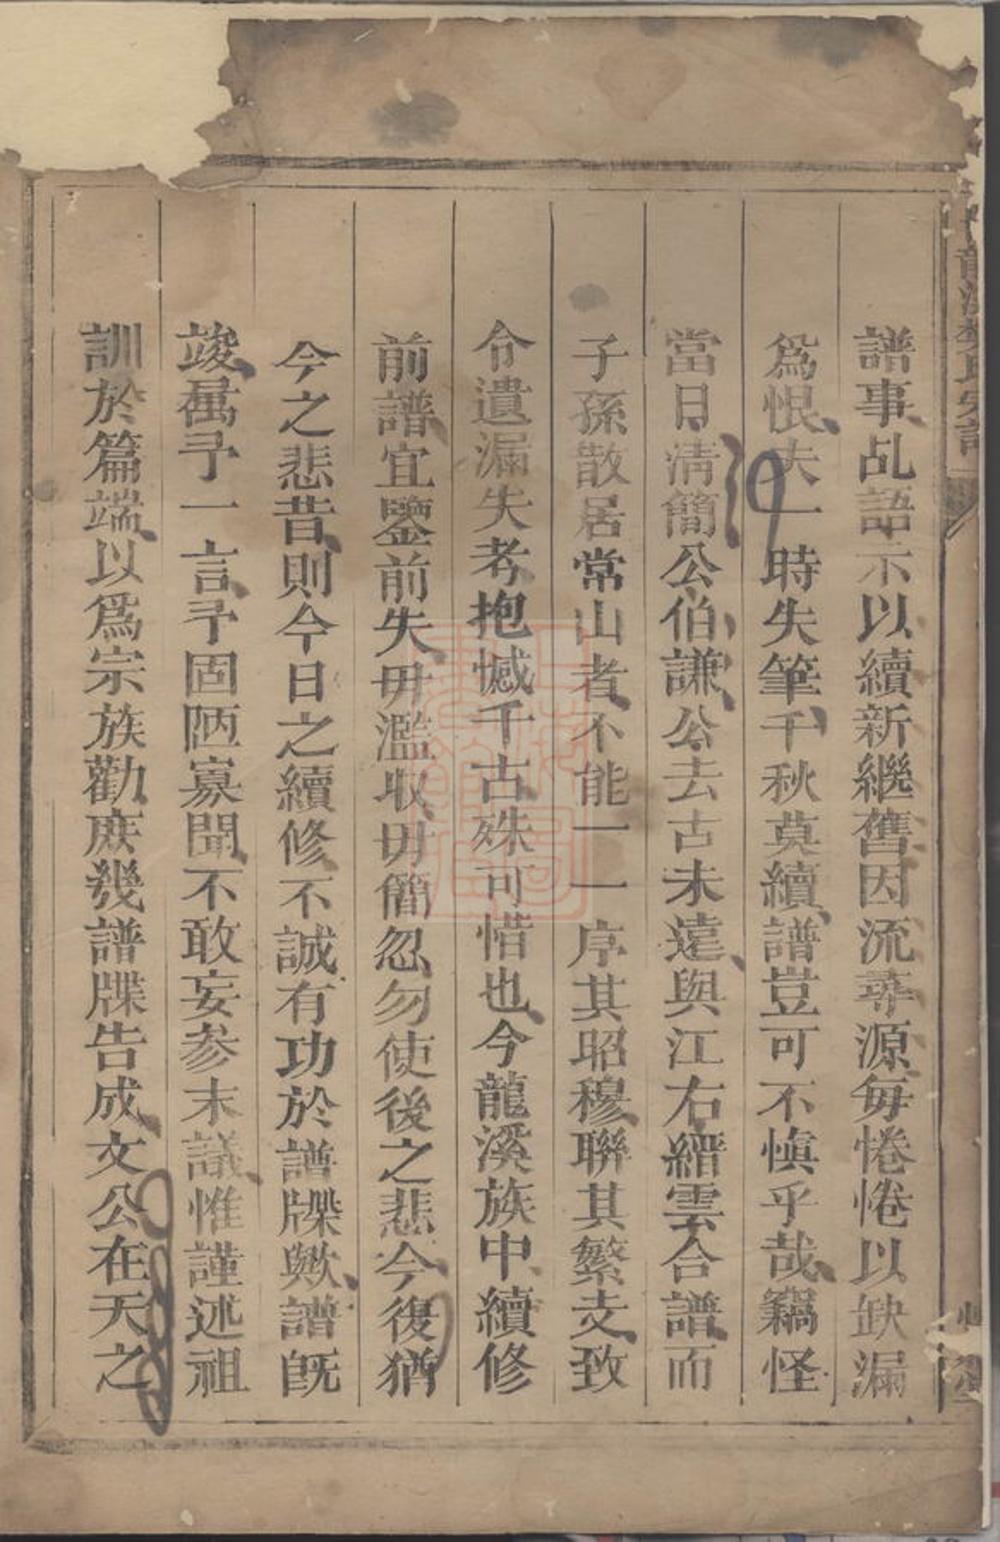 譜事乩語示以續新繼舊因流尋源每惓惓以缺漏
為恨夫一時失筆千秋莫續譜豈可不慎乎哉竊怪
當日清簡公伯謙公去古未遠與江右縉雲合譜而
子孫散居常山者不能一一序其昭穆聯其繁支致
令遺漏失考抱憾千古殊可惜也今龍溪族中續修
前譜宜鑒前失毋濫收毋簡忽勿使後之悲今復猶
今之悲昔則今日之續修不誠有功於譜牒歟譜旣
竣屬予一言予固陋寡聞不敢妄參末議惟謹述祖
訓於篇端以為宗族勸庶幾譜牒告成文公在天之